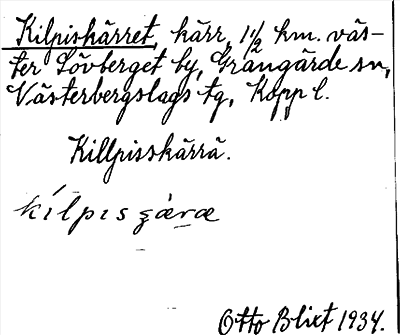 Kilpiskärret, kärr, 1 1/2 km. väs-
ter Lövberget by, Grangärde sn,
Västerbergslags tg, Kopp l.
Killpisskärrä.
kílpɪsʂæ̀ræ
Otto Blixt 1934.